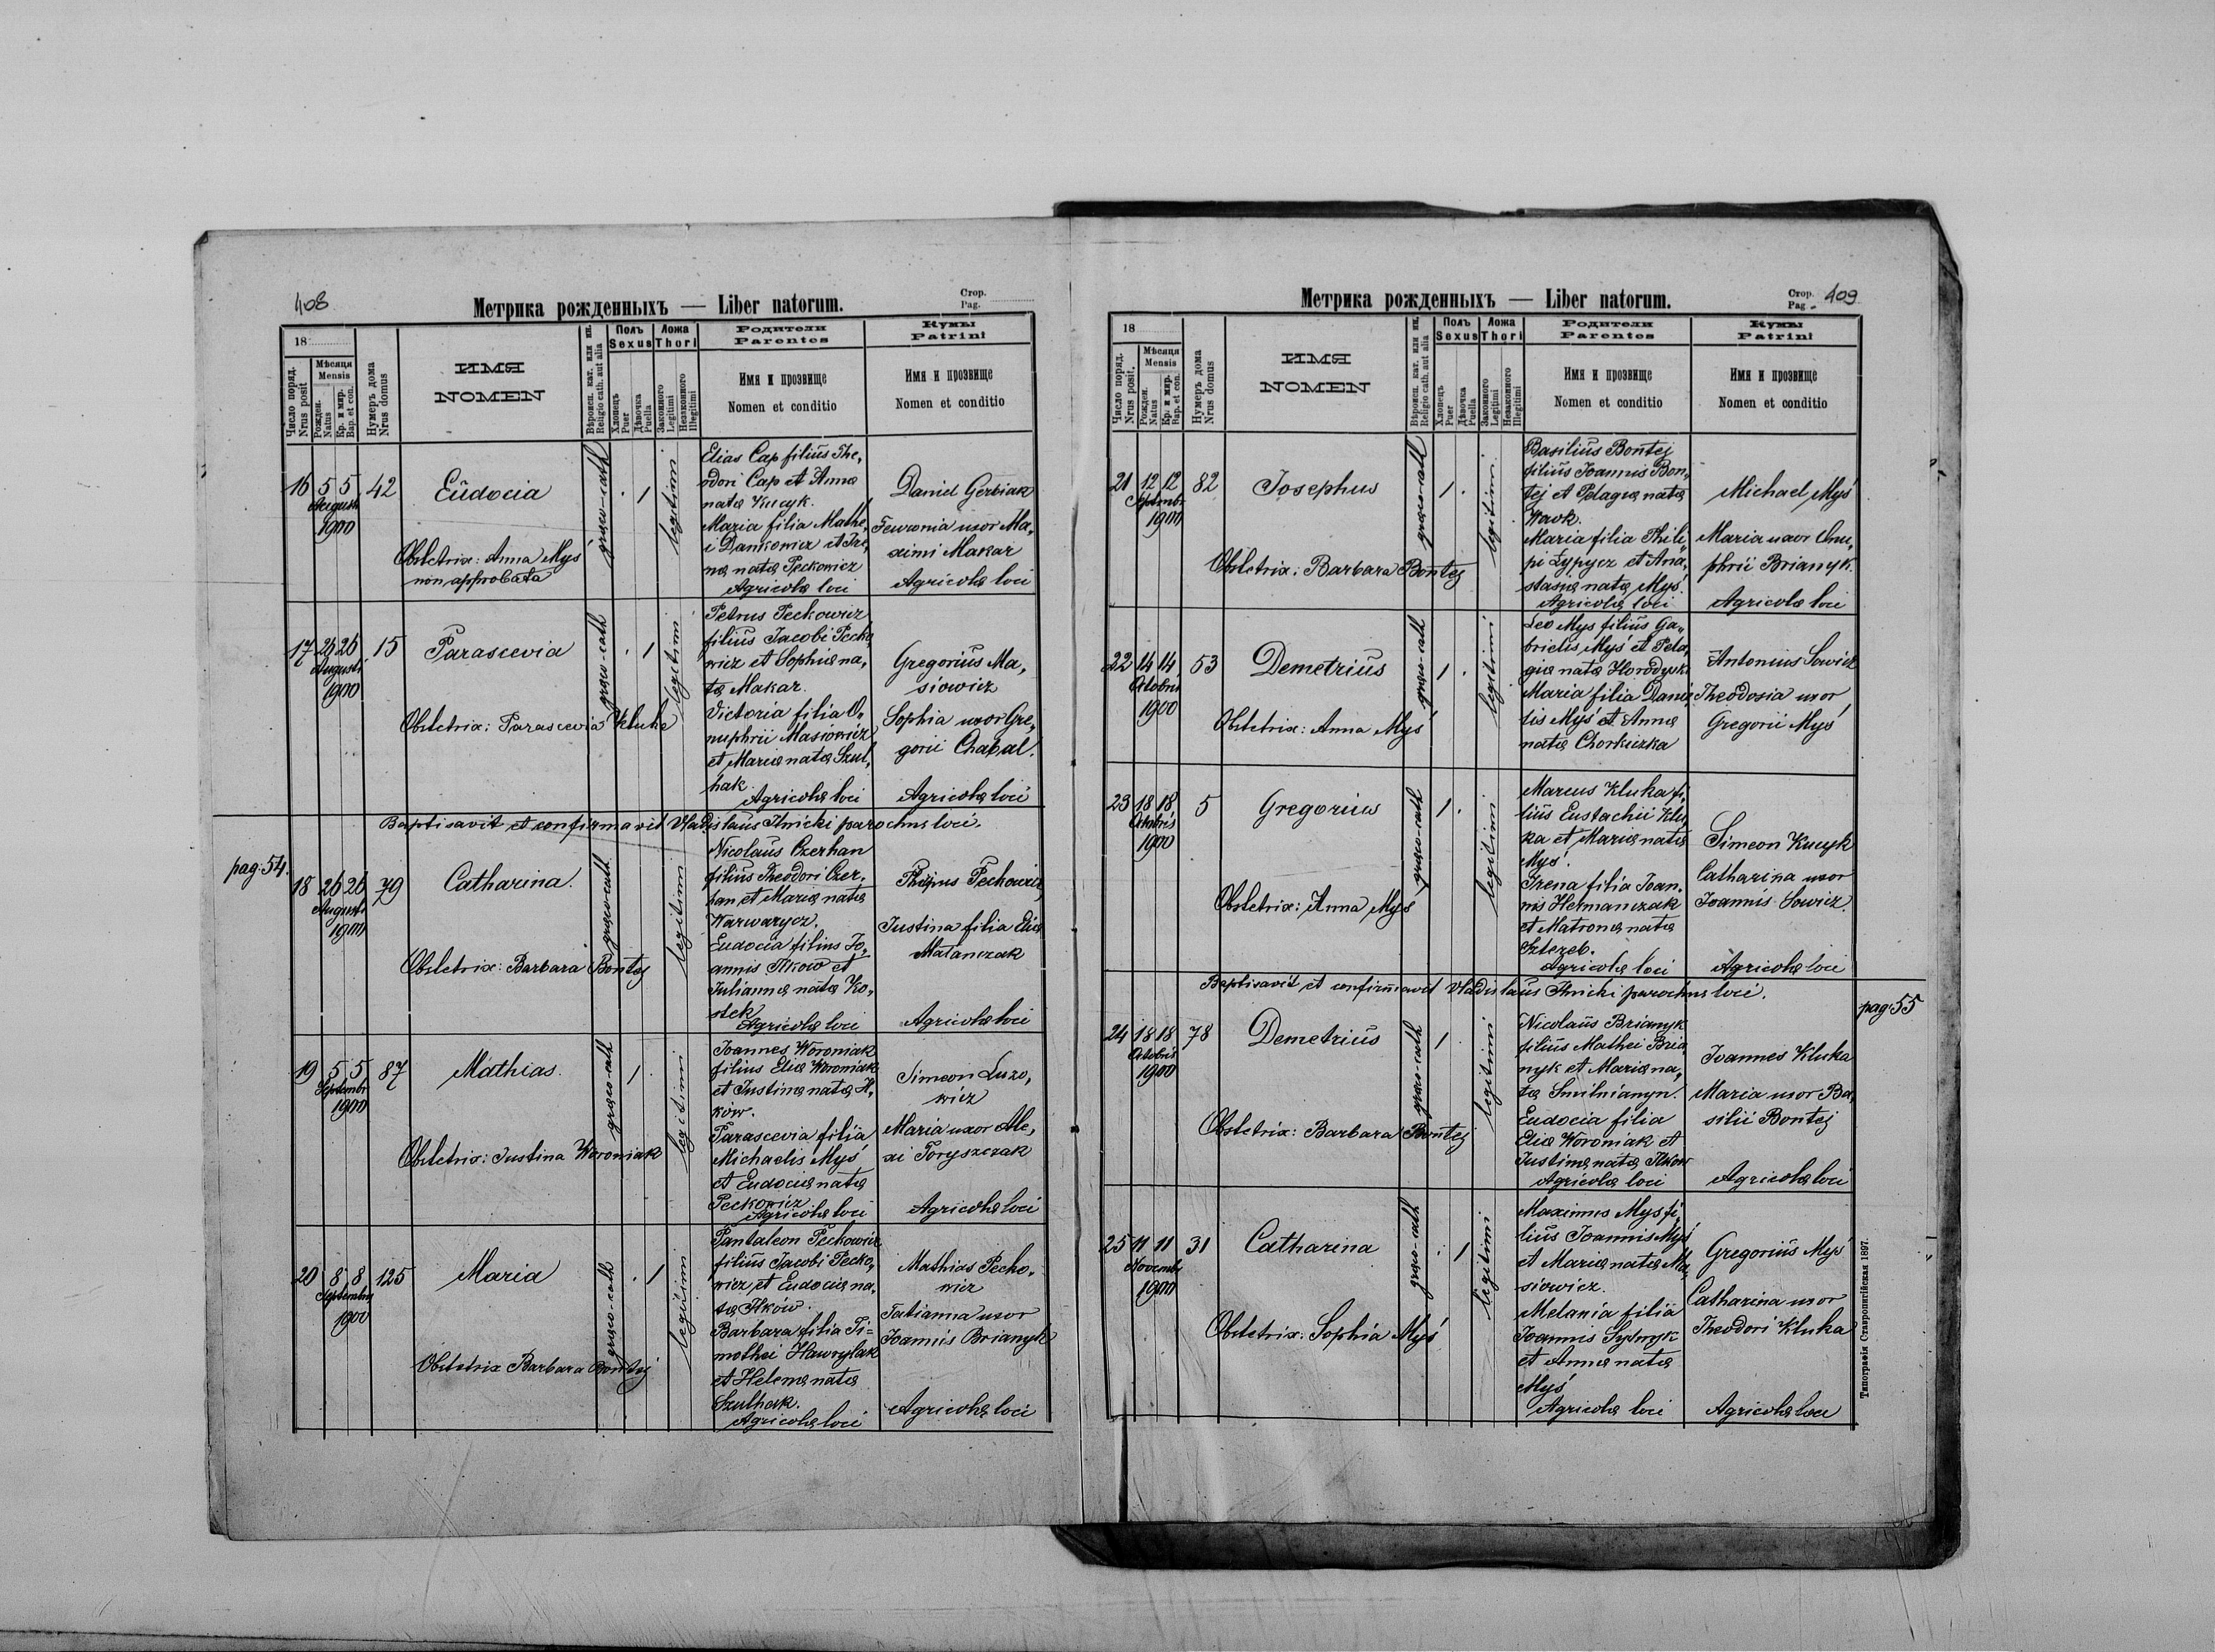 408
Метрика рожденныхъ — Liber natorum.
Стор.
Pag.
18
Число поряд.
Nrus posit
Мѣсяця
Mensis
Рожден.
Natus
Кр. и мир.
Bap. et con.
Нумеръ дома
Nrus domus
ИМЯ
NOMEN
Вѣроисп. кат. или ин.
Religio cath. aut alia
Полъ
Sexus
Хлопець
Puer
Дѣвочка
Puella
Ложа
Thori
Законного
Legitimi
Незаконного
Illegitimi
Родители
Parentes
Имя и прозвище
Nomen et conditio
Кумы
Patrini
Имя и прозвище
Nomen et conditio
16 5 5 Augusti 1900 42
Eudocia
graeco-cath
1
legitimi
Obstetrix: Anna Mys
non approbata
Elias Cap filius The,
odori Cap et Anna
nata Kucyk.
Maria filia Mathe,
i Dankowicz et Ire,
na nata Peckowicz
Agricolae loci
Daniel Gerbiak
Fewronia uxor Ma,
ximi Makar
Agricolae loci
17 26 26 Augusti 1900 15
Parascevia
graeco-cath
1
legitimi
Obstetrix: Parascevia Kluka
Petrus Peckowicz
filius Jacobi Pecko,
wicz et Sophia na,
ta Makar.
Victoria filia O,
nuphrii Masiowicz
et Maria nata Szul,
hak
Agricolae loci
Gregorius Ma,
siowicz
Sophia uxor Gre,
gorii Chabal.
Agricolae loci
Baptisavit et confirmavit Vladislaus Ilnicki parochus loci.
pag. 54.
18 26 26 Augusti 1900 79
Catharina.
graeco-cath
legitimi
Obstetrix: Barbara Bontej
Nicolaus Czerhan
filius Theodori Czer,
han et Maria nata
Warwarycz.
Eudocia filius Jo,
annis Ilkow et
Julianna nata Ko,
stek
Agricolae loci
Peckowicz
Justina filia Eliae
Malanczak
Agricolae loci
19 5 5 Septembr 1900 87
Mathias.
graeco-cath
1
legitimi
Obstetrix: Justina Woroniak
Joannes Woroniak
filius Elia Woroniak
et Justina nata Il,
ków.
Parascevia filia
Michaelis Myś
et Eudocia nata
Peckowicz
Agricolae loci
Simeon Luzo,
wicz
Maria uxor Ale,
xi Toryszczak
Agricolae loci
20 8 8 Septembr 1900 125
Maria
graeco-cath
1
legitimi
Obstetrix Barbara Bontej
Pantaleon Peckowicz
filius Jacobi Pecko,
wicz et Eudocia na,
ta Ilków.
Barbara filia Ti=
mothei Hawrylak
et Helena nata
Szulhak.
Agricolae loci
Mathias Pecko,
wicz
Tatianna uxor
Joannis Brianyk
Agricolae loci
Метрика рожденныхъ — Liber natorum.
Стор.
Pag. 409
18
Число поряд.
Nrus posit.
Мѣсяця
Mensis
Рожден.
Natus
Кр. и мир.
Bap. et con.
Нумеръ дома
Nrus domus
ИМЯ
NOMEN
Вѣроисп. кат. или ин.
Religio cath. aut alia
Полъ
Sexus
Хлопець
Puer
Дѣвочка
Puella
Ложа
Thori
Законного
Legitimi
Незаконного
Illegitimi
Родители
Parentes
Имя и прозвище
Nomen et conditio
Кумы
Patrini
Имя и прозвище
Nomen et conditio
21 12 12 Septembr 1900 82
Josephus
graeco-cath
1
legitimi
Obstetrix: Barbara Bontej
Basilius Bontej
filius Joannis Bon,
tej et Pelagia nata
Wowk.
Maria filia Phili,
pi Łypycz et Ana,
stasia nata Myś.
Agricolae loci
Michael Myś
Maria uxor Onu,
phrii Brianyk.
Agricolae loci
22 14 14 Octobris 1900 53
Demetrius
graeco-cath
1
legitimi
Obstetrix: Anna Myś
Leo Mys filius Ga,
brielis Myś et Pela,
gia nata Horodyski
Maria filia Danie,
lis Myś et Anna
nata Chorkiczka
Antonius Sowicz
Theodosia uxor
Gregorii Myś
23 18 18 Octobris 1900 5
Gregorius
graeco-cath
1
legitimi
Obstetrix: Anna Myś
Marcus Kluka fi,
lius Eustachii Klu,
ka et Maria nata
Myś.
Irena filia Joan,
nis Hermanczak
et Matrona nata
Sztereb.
Agricolae loci
Simeon Kucyk
Catharina uxor
Joannis Sowicz.
Agricolae loci
Baptisavit et confirmavit Vladislaus Ilnicki parochus loci.
pag. 55
24 18 18 Octobris 1900 78
Demetrius
graeco-cath
1
legitimi
Obstetrix: Barbara Bontej
Nicolaus Brianyk
filius Mathei Bria,
nyk et Maria na,
ta Smilnianyn.
Eudocia filia
Elia Woroniak et
Justina nata Ilkow
Agricolae loci
Joannes Kluka
Maria uxor Ba,
silii Bontej
Agricolae loci
25 11 11 Novembr 1900 31
Catharina
graeco-cath
1
legitimi
Obstetrix: Sophia Myś
Maximus Mys fi,
lius Joannis Myś
et Maria nata Ma,
siowicz.
Melania filia
Joannis
et Anna nata
Myś
Agricolae loci
Gregorius Myś
Catharina uxor
Theodori Kluka
Agricolae loci
Типографія Ставропигійская 1897.